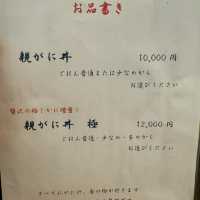 お品書き
親がに丼 10,000円
ごはん普通または少なめから
お選びください
贅沢の極！かに増量！
親がに丼 極 12,000円
ごはん普通・少なめ・多めから
お選びください